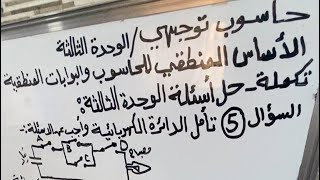 حاسوب توجيهي/الوحدة الثالثة
الأساس المنطقي للحاسوب والبوابات المنطقية
تكملة - حل أسئلة الوحدة الثالثة:
السؤال ⑤ تأمل الدائرة الكهربائية وأجب عن الأسئلة:-
A B C D مصباح